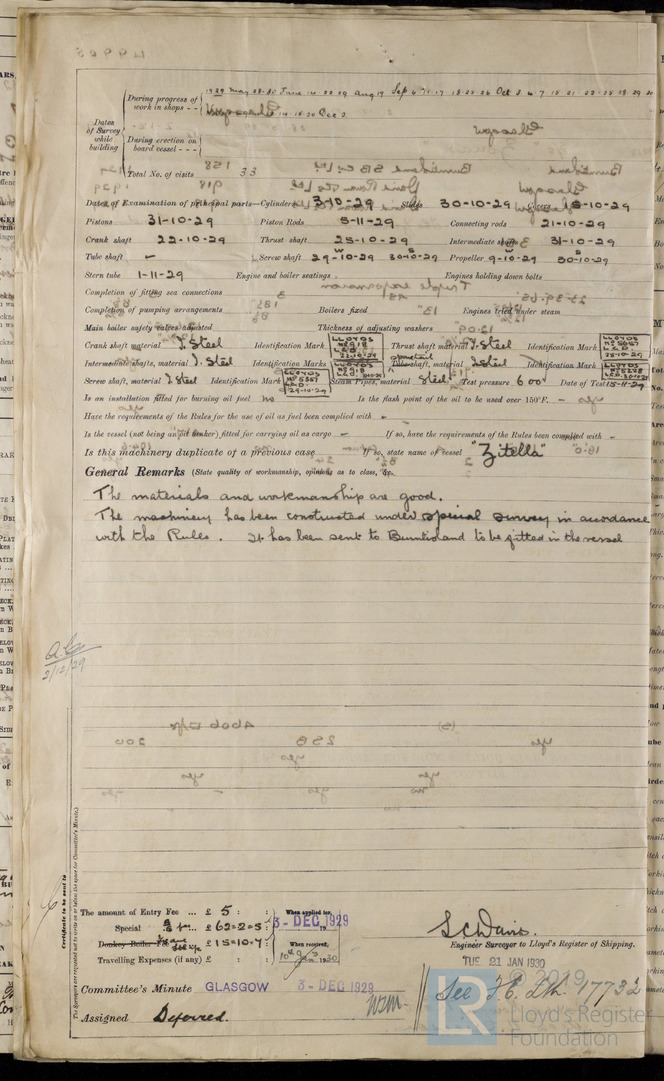 Dates of Survey while building
During progress of work in shops - - 1929 May 28-30 June 14 22 29 Aug 19 Sep 6 11-17 18-25 26 Oct 3 4-7 15 21
During erection on board vessel - - -
Total No. of visits 33
Dates of Examination of principal parts—Cylinders 3-10-29 Slides 30-10-29 Covers 15-10-29
Pistons 31-10-29 Piston Rods 5-11-29 Connecting rods 21-10-29
Crank shaft 22-10-29 Thrust shaft 25-10-29 Intermediate shafts 31-10-29
Tube shaft - Screw shaft W 29-10-29 S 30-10-29 Propeller 9-10-29 S 30-10-29
Stern tube 1-11-29 Engine and boiler seatings Engines holding down bolts
Completion of fitting sea connections
Completion of pumping arrangements Boilers fixed Engines tried under steam
Main boiler safety valves adjusted Thickness of adjusting washers
Crank shaft material I. Steel Identification Mark LLOYDS 22-10-29 Thrust shaft material I. Steel Identification Mark LLOYDS No 5667 LSD 25-10-29
Intermediate shafts, material I. Steel Identification Marks LLOYDS Tube shaft, material I Steel Identification Mark LLOYDS
Screw shaft, material I Steel Identification Mark LLOYDS No 5667 LSD. 29-10-29 Steam Pipes, material Steel Test pressure 600 Date of Test 15-11-29
Is an installation fitted for burning oil fuel no Is the flash point of the oil to be used over 150°F. -
Have the requirements of the Rules for the use of oil as fuel been complied with -
Is the vessel (not being an oil tanker) fitted for carrying oil as cargo - If so, have the requirements of the Rules been complied with -
Is this machinery duplicate of a previous case If so, state name of vessel "Zitella"
General Remarks (State quality of workmanship, opinions as to class, &c.
The materials and workmanship are good.
The machinery has been constructed under special survey in accordance
with the Rules. It has been sent to Burntisland to be fitted in the vessel
2/12/29
Certificate to be sent to
(The Surveyors are requested not to write on or below the space for Committee's Minute.)
The amount of Entry Fee ... £ 5 : : When applied for,
Special £ 62=2=5 : 3 - DEC 1929
Donkey Boiler Fee £ 15=10=7 : When received,
Travelling Expenses (if any) £ : : 10th Jan 1930
S C Davis.
Engineer Surveyor to Lloyd's Register of Shipping.
TUE 21 JAN 1930
Committee's Minute GLASGOW 3 - DEC 1929
See F.E. Lth. 17732
Assigned Deferred.
© 2019
LR
Lloyd's Register
Foundation